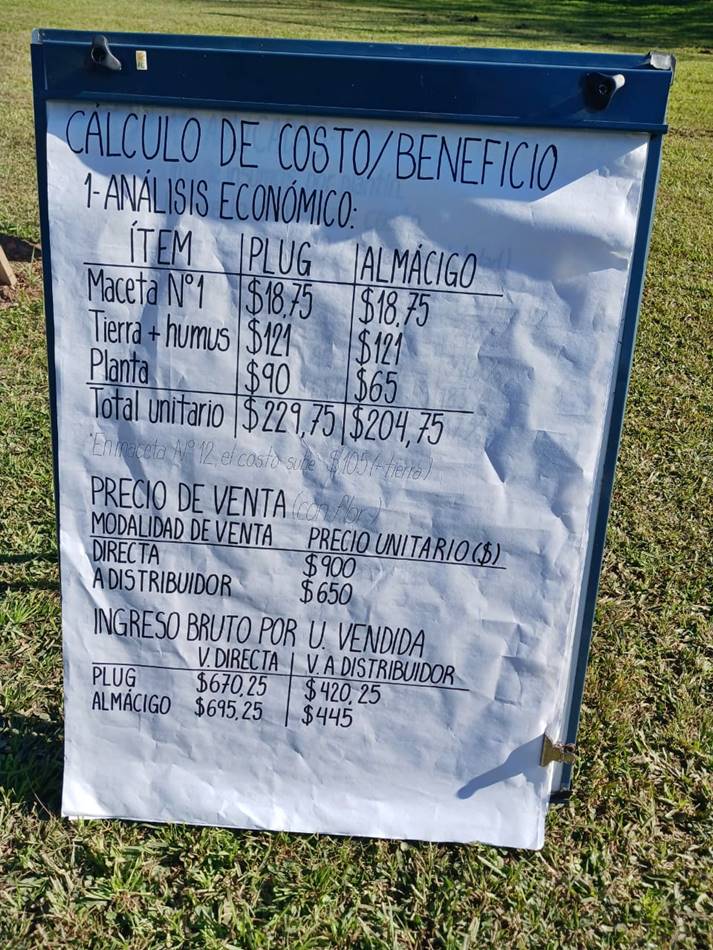 CÁLCULO DE COSTO/BENEFICIO
1-ANÁLISIS ECONÓMICO:
ÍTEM PLUG ALMÁCIGO
Maceta N°1 $18,75 $18,75
Tierra + humus $121 $121
Planta $90 $65
Total unitario $229,75 $204,75
*En maceta N°12, el costo sube $105 (+ tierra)
PRECIO DE VENTA (con flor)
MODALIDAD DE VENTA PRECIO UNITARIO ($)
DIRECTA $900
A DISTRIBUIDOR $650
INGRESO BRUTO POR U. VENDIDA
V. DIRECTA V. A DISTRIBUIDOR
PLUG $670,25 $420,25
ALMÁCIGO $695,25 $445